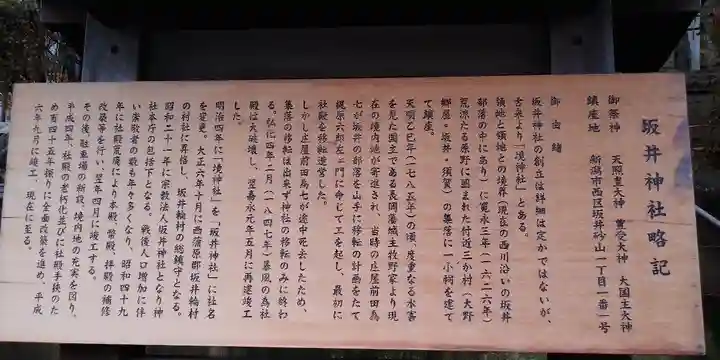 坂井神社略記
御祭神　天照皇大神　豊受大神　大国主大神
鎮座地　新潟市西区坂井砂山一丁目一番一号
御由緒
坂井神社の創立は詳細は定かではないが、
古来より「境神社」とある。
領地と領地との境界(現在の西川沿いの坂井
部落の中にあり)に寛永三年(一六二六年)
荒涼たる原野に囲まれた付近三か村(大野
郷屋・坂井・須賀)の集落に一小祠を建て
て鎮座。
天明乙巳年(一七八五年)の頃、度重なる水害
を見た国主である長岡藩城主牧野家より現
在の境内地が寄進され、当時の庄屋前田為
七が坂井の部落を山手に移転の計画をたて
梶原六郎左ェ門に命じて工を起し、最初に
社殿を移転造営した。
しかし庄屋前田為七が途中死去したため、
集落の移転は出来ず神社の移転のみに終わ
る。弘化四年二月(一八四七年)暴風の為社
殿は大破壊し、翌嘉永元年五月に再建竣工
した。
明治四年に「境神社」を「坂井神社」に社名
を変更。大正六年十月に西蒲原郡坂井輪村
の村社に昇格し、坂井輪村の総鎮守となる。
昭和二十一年に宗教法人坂井神社となり神
社本庁の包括下となる。戦後人口増加に伴
い崇敬者の数も年々多くなり、昭和四十九
年に社殿荒廃により本殿、幣殿、拝殿の補修
改築等を行い、翌年四月に竣工する。
その後、駐車場の新設、境内地の充実を図り、
平成四年、社殿の老朽化並びに社殿手狭のた
め百四十五年振りに全面改築を進め、平成
六年九月に竣工、現在に至る。